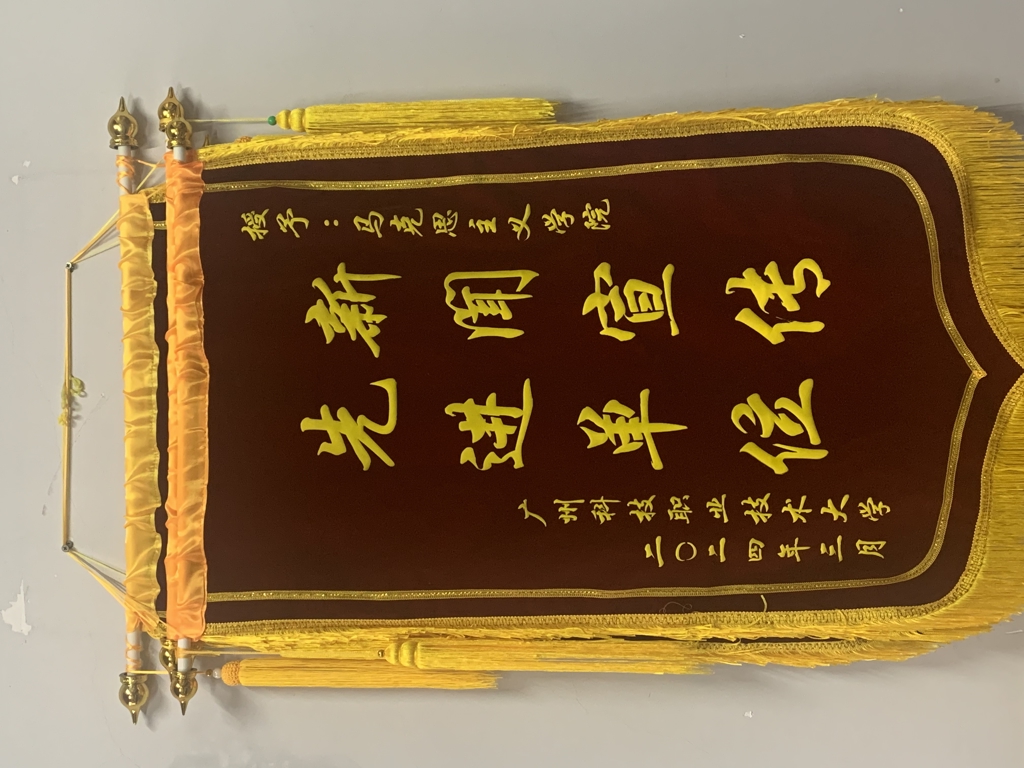 授予：马克思主义学院
新闻宣传
先进单位
广州科技职业技术大学
二〇二四年三月